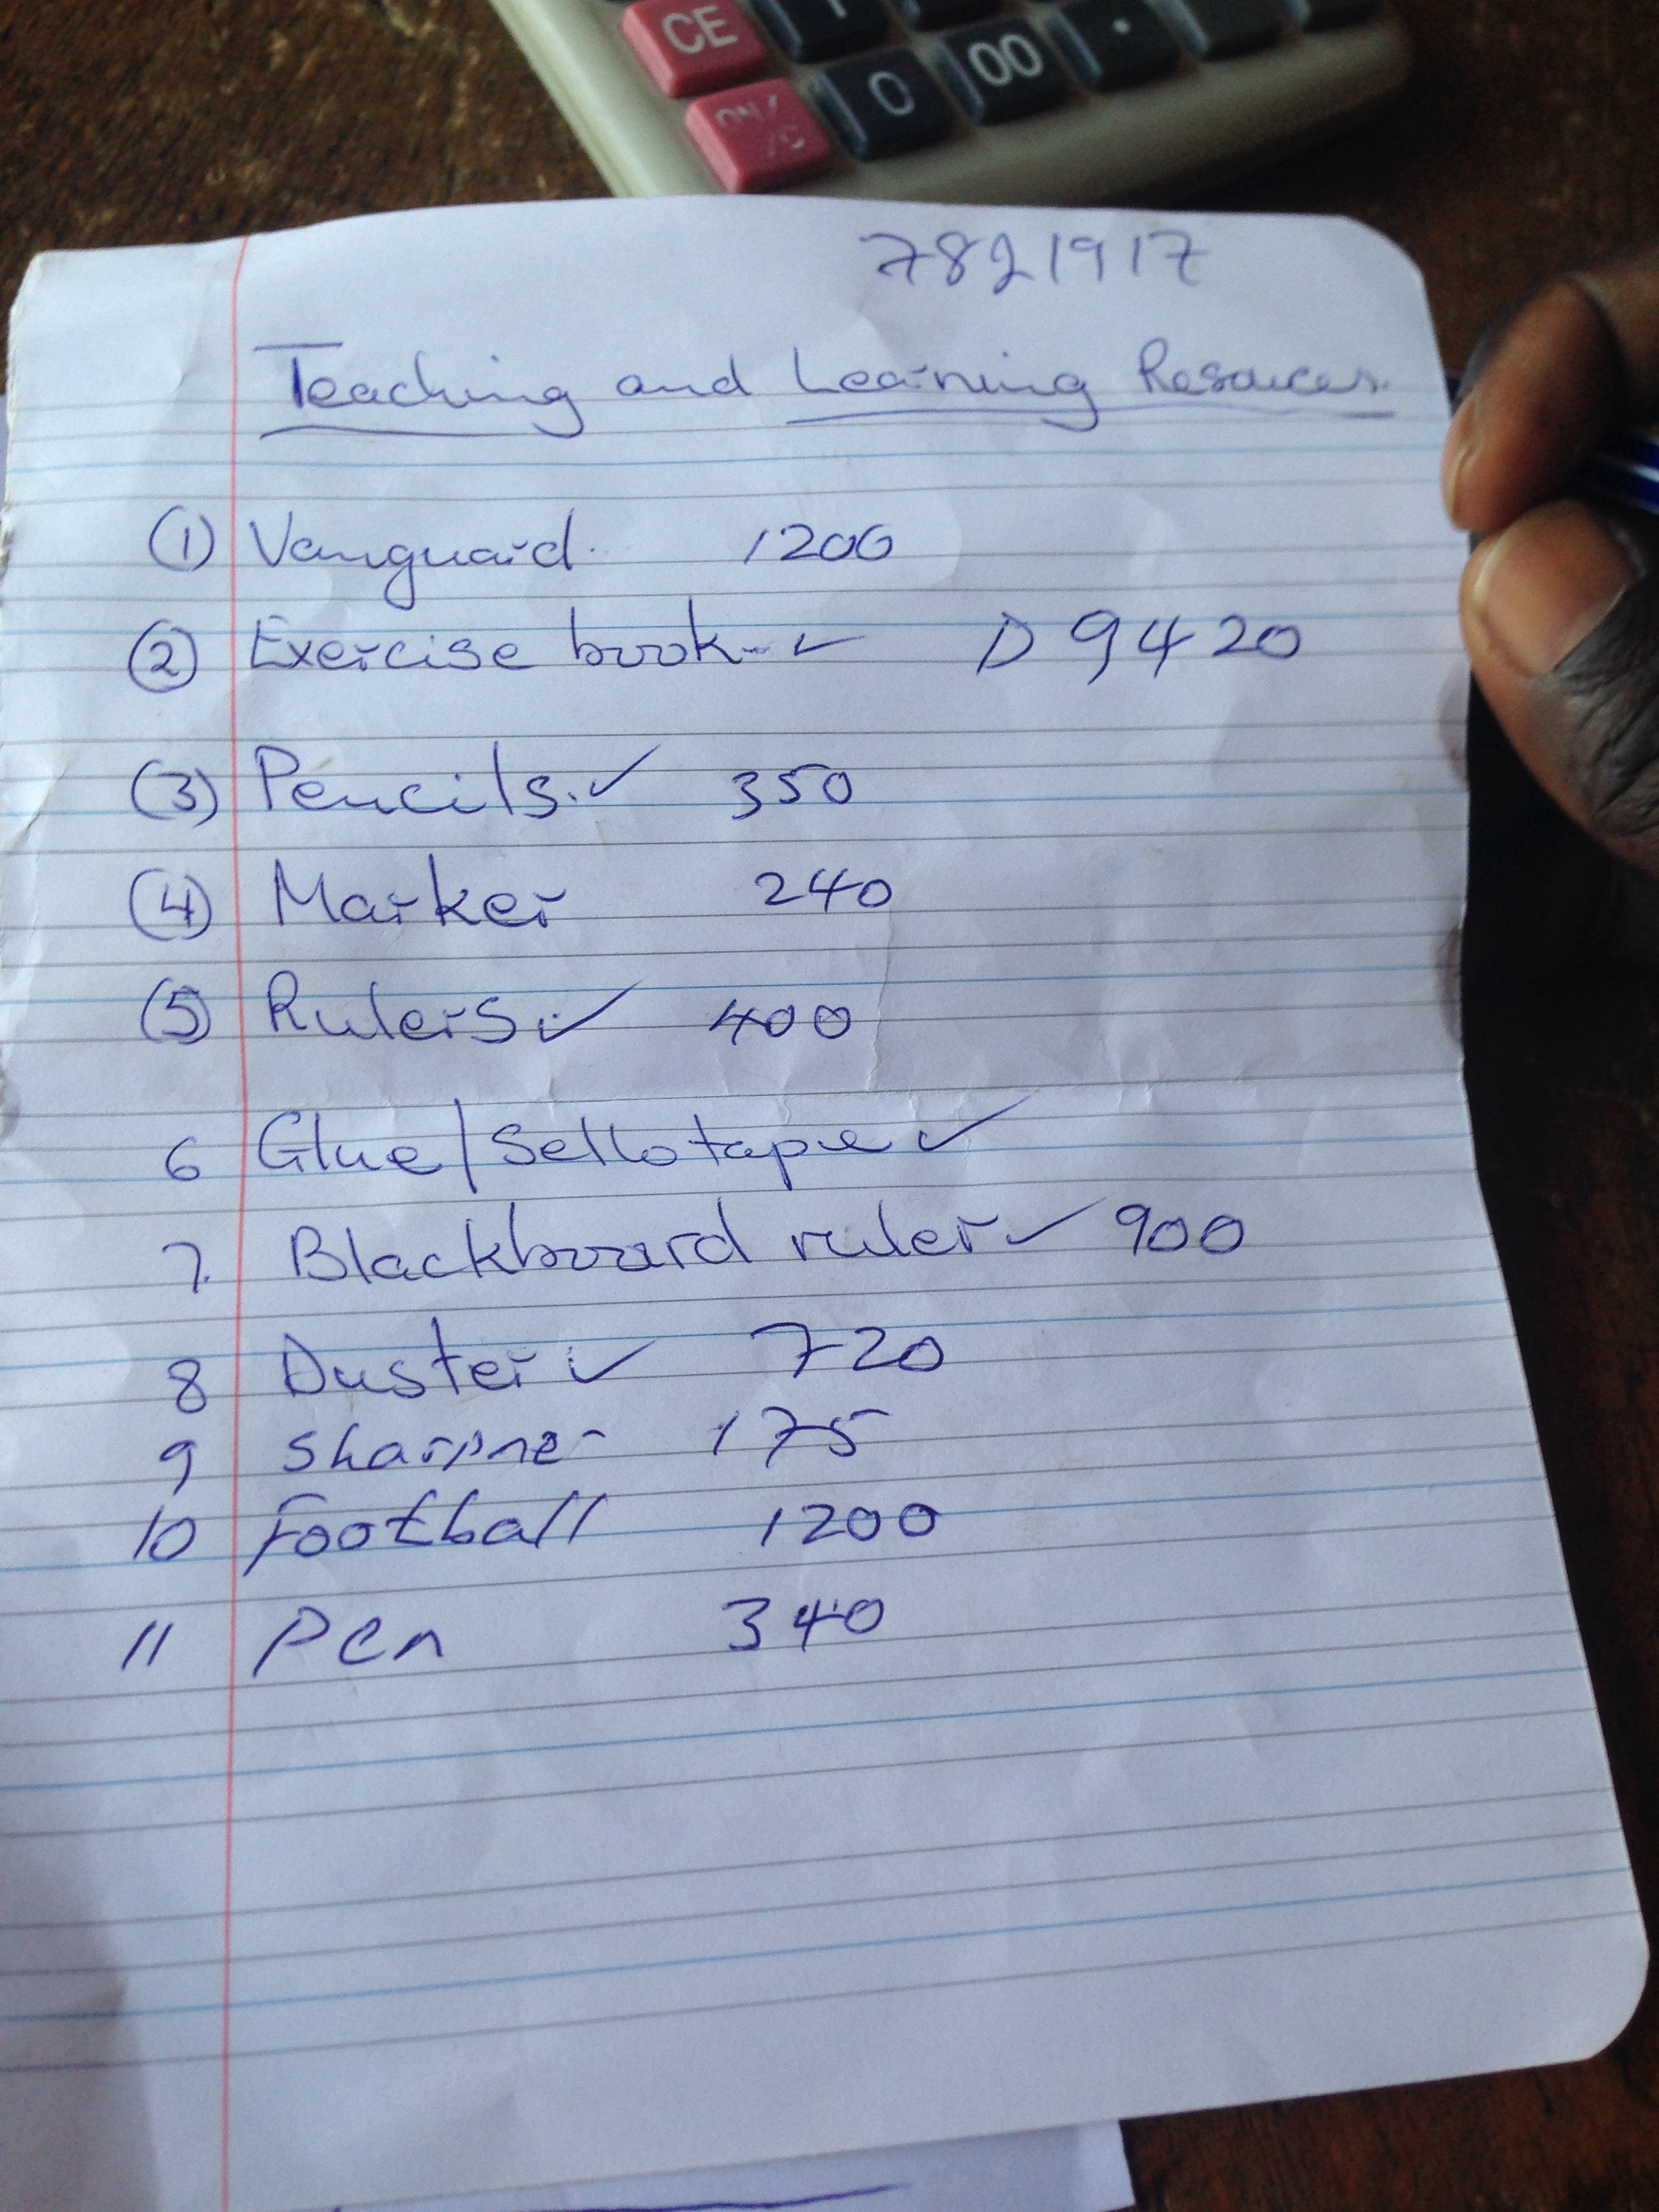 CE
ON/C
0
00
.
7821917
Teaching and Learning Resources.
(1) Vanguard. 1200
(2) Exercise book ✓ D 9420
(3) Pencils. ✓ 350
(4) Marker 240
(5) Rulers ✓ 400
6 Glue/Sellotape ✓
7. Blackboard ruler ✓ 900
8 Duster ✓ 720
9 Sharpner 175
10 Football 1200
11 Pen 340